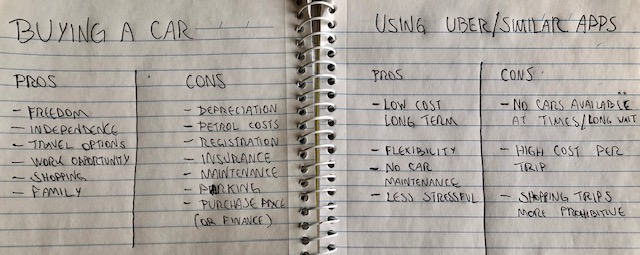 BUYING A CAR
PROS
- FREEDOM
- INDEPENDENCE
- TRAVEL OPTIONS
- WORK OPPORTUNITY
- SHOPPING
- FAMILY
CONS
- DEPRECIATION
- PETROL COSTS
- REGISTRATION
- INSURANCE
- MAINTENANCE
- PARKING
- PURCHASE PRICE
(OR FINANCE)
USING UBER/SIMILAR APPS
PROS
- LOW COST
LONG TERM
- FLEXIBILITY
- NO CAR
MAINTENANCE
- LESS STRESSFUL
CONS
- NO CARS AVAILABLE
AT TIMES/LONG WAIT
- HIGH COST PER
TRIP
- SHOPPING TRIPS
MORE PROHIBITIVE